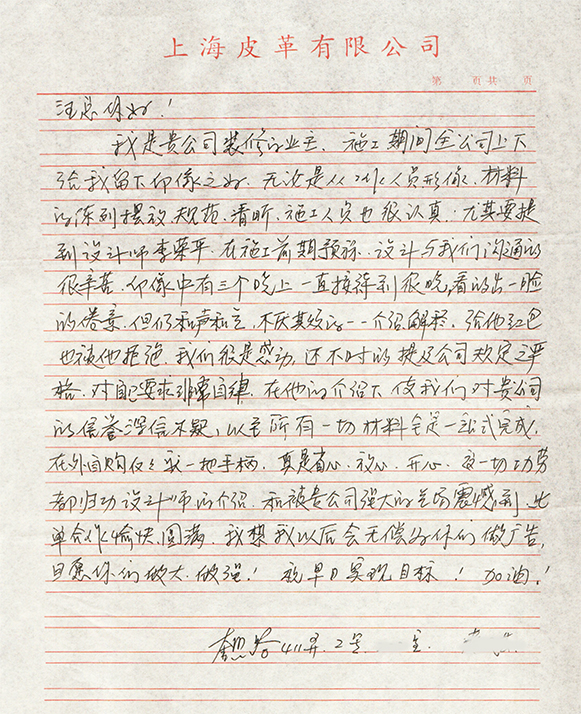 上海皮革有限公司
第 页共 页
汪总你好！
我是贵公司装修的业主、施工期间全公司上下
给我留下印像之好、无论是从工作人员形像、材料
的陈列摆放、规范、清晰、施工人员也很认真、尤其要提
到设计师李荣平、在施工前期预标、设计与我们沟通的
很辛苦、印像中有三个晚上一直接待到很晚，看的出一脸
的倦意、但仍和声和言、不厌其烦的一一介绍解释、给他红包
也被他拒绝、我们很是感动、还不时的提及公司规定之严
格、对自己要求非常自律、在他的介绍下使我们对贵公司
的信誉深信不疑，以至所有一切材料全是一站式完成，
在外面购仅一把手柄、真是省心、放心、开心、这一切功劳
都归功设计师的介绍、和被贵公司强大的气场震憾到，此
单合作愉快、圆满、我想我以后会无偿为你们做广告，
自愿你们做大、做强！ 祝早日实现目标！ 加油！
路411弄、2号 室